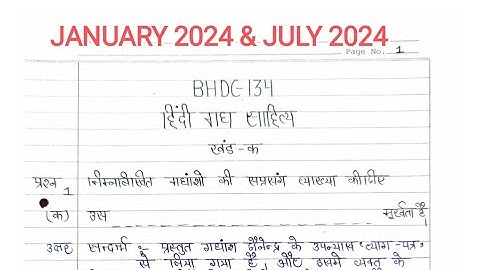 JANUARY 2024 & JULY 2024
Page No. 1
BHDC-134
हिंदी गद्य साहित्य
खंड-क
प्रश्न 1 निम्नलिखित गद्यांशो की सप्रसंग व्याख्या कीजिए
(क) उस मुर्खता है।
उत्तर सन्दर्भ :- प्रस्तुत गद्यांश जैनेन्द्र के उपन्यास 'त्याग-पत्र'
से लिया गया है और इसमें व्यक्त के